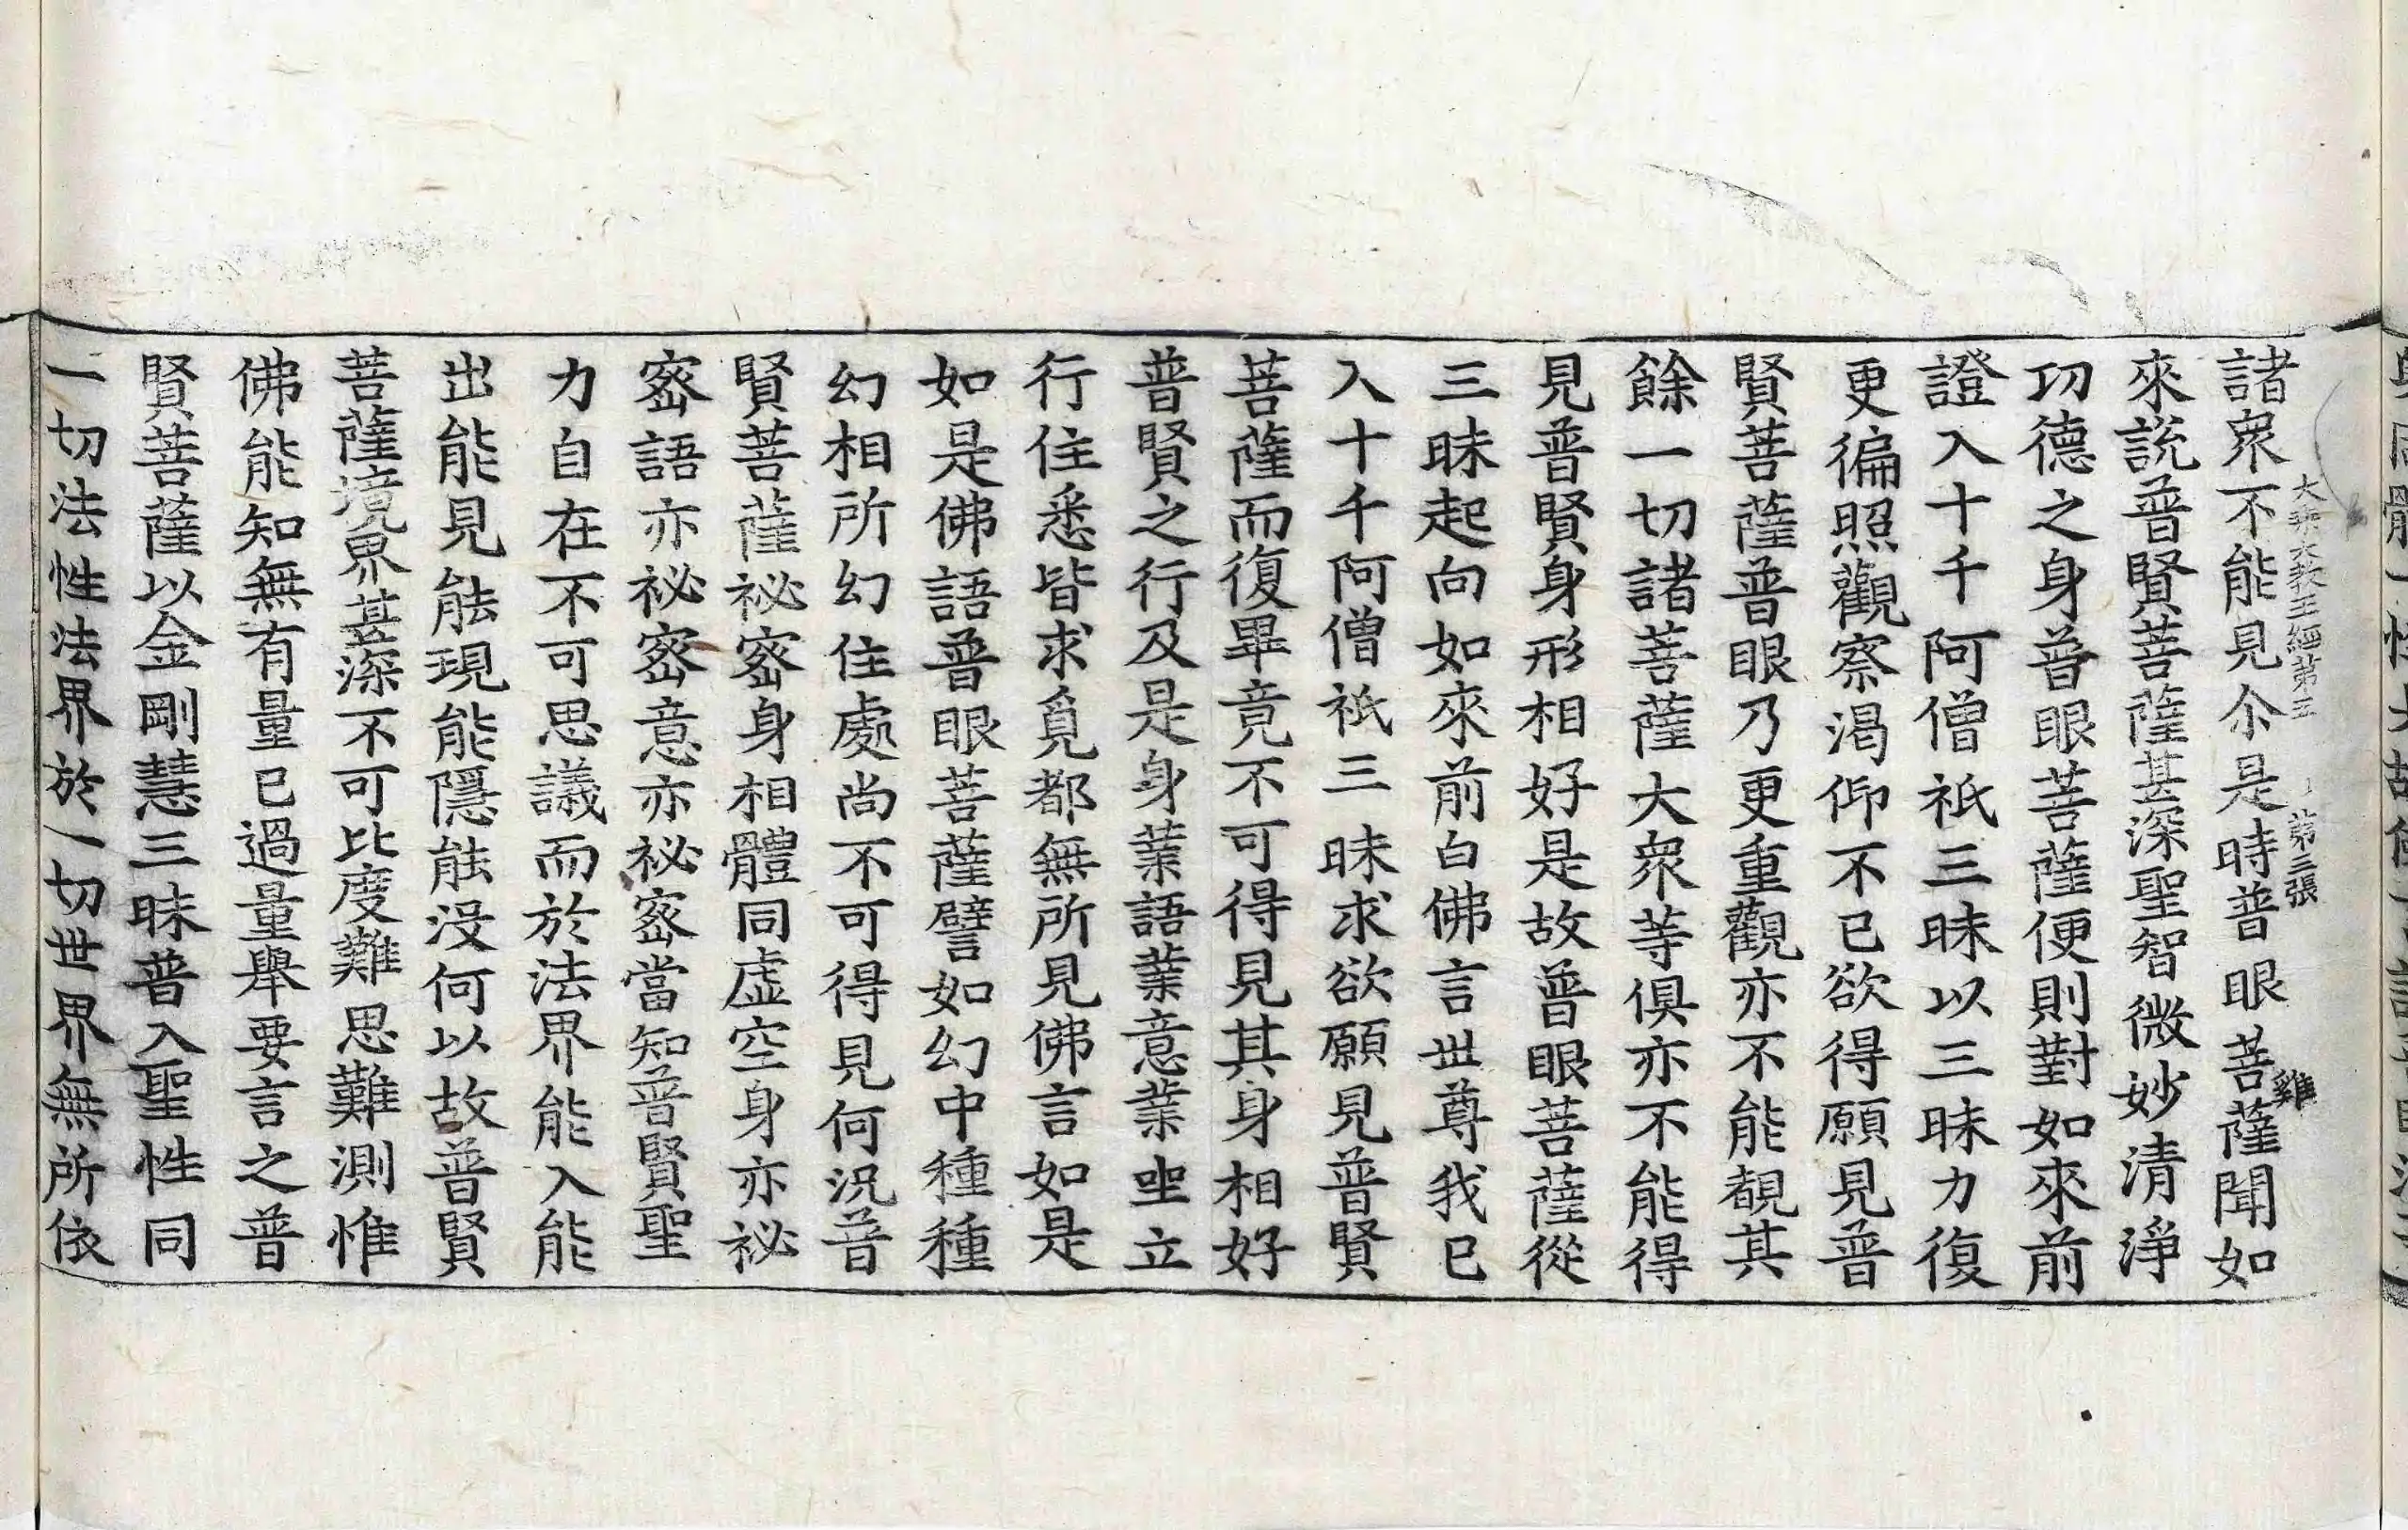 諸衆不能見尒是時普眼菩薩聞如
來説普賢菩薩甚深聖智微妙清淨
功德之身普眼菩薩便則對如來前
證入十千阿僧祇三昧以三昧力復
更徧照觀察渴仰不已欲得願見普
賢菩薩普眼乃更重觀亦不能覩其
餘一切諸菩薩大衆等俱亦不能得
見普賢身形相好是故普眼菩薩從
三昧起向如來前白佛言世尊我已
入十千阿僧祇三昧求欲願見普賢
菩薩而復畢竟不可得見其身相好
普賢之行及是身業語業意業坐立
行住悉皆求覓都無所見佛言如是
如是佛語普眼菩薩譬如幻中種種
幻相所幻住處尚不可得見何況普
賢菩薩祕密身相體同虛空身亦祕
密語亦祕密意亦祕密當知普賢聖
力自在不可思議而於法界能入能
出能見能現能隱能沒何以故普賢
菩薩境界甚深不可比度難思難測惟
佛能知無有量已過量舉要言之普
賢菩薩以金剛慧三昧普入聖性同
一切法性法界於一切世界無所依
大乘大教王經第五 第三張 雞